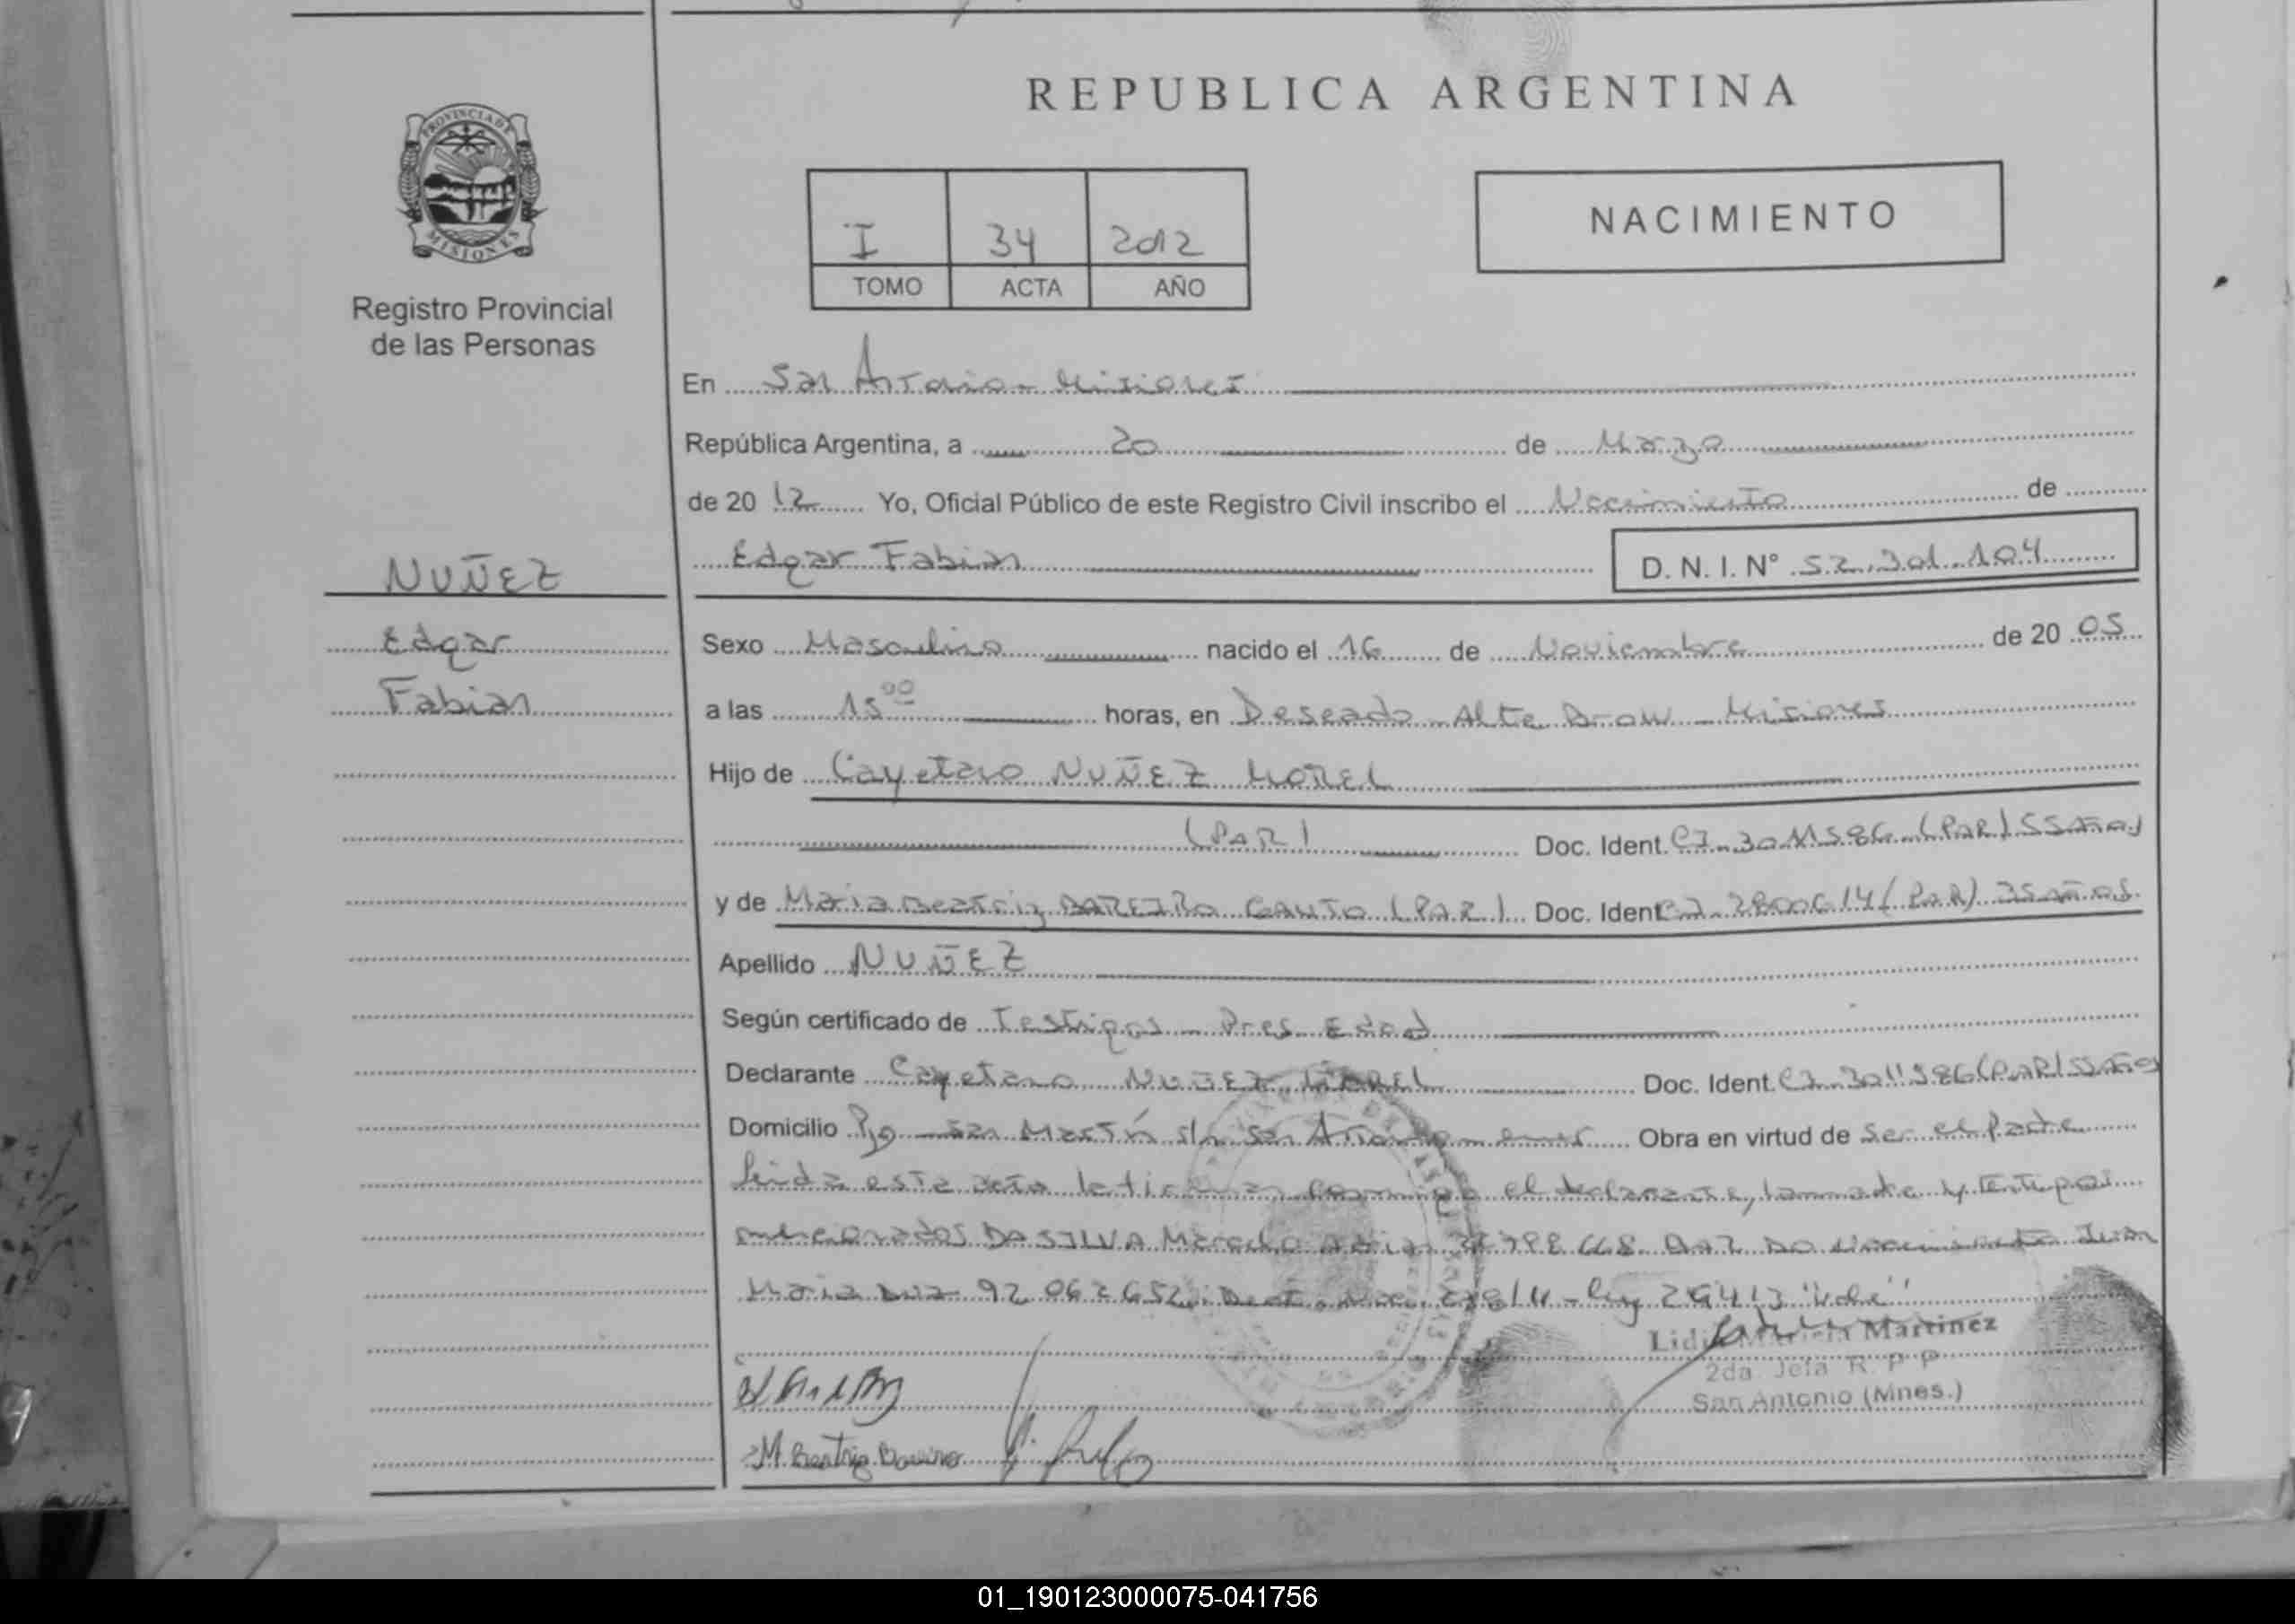 REPUBLICA ARGENTINA
PROVINCIA DE MISIONES
Registro Provincial
de las Personas
I 34 2012
TOMO ACTA AÑO
NACIMIENTO
En San Antonio - Misiones
República Argentina, a 20 de Marzo
de 20 12 Yo, Oficial Público de este Registro Civil inscribo el Nacimiento de
NUÑEZ
Edgar Fabian D. N. I. Nº 52.301.104
Edgar
Fabian
Sexo Masculino nacido el 16 de Noviembre de 20 05
a las 15 00 horas, en Deseado - Alte Brow - Misiones
Hijo de Cayetano NUÑEZ MOREL
(PAR) Doc. Ident. CI - 3011586 (PAR) 55 Años
y de Maria Beatriz BAREIRO GAUTO (PAR) Doc. Ident CI - 2800614 (PAR) 35 Años
Apellido NUÑEZ
Según certificado de Testigos - Pres Edad
Declarante Cayetano NUÑEZ MOREL Doc. Ident. CI - 3011586 (PAR) 55 Años
Domicilio San Martín s/n San Antonio Obra en virtud de Ser el Padre
Leida esta acta la firman conmigo el declarante, la madre y testigos
mencionados DA SILVA Marcelo
Maria Luz 92.062.652 278/11 - Ley 26413 "Vale"
Lidia Martinez
2da Jefa R. P. P
San Antonio (Mnes.)
M. Beatriz Bareiro
01_190123000075-041756